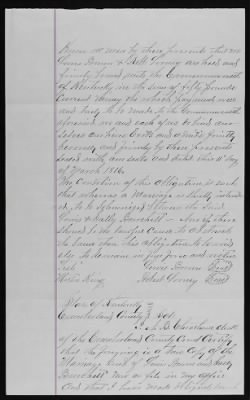 Know all men by these presents that we
Lewis Brown & Robt Toomy are held and
firmly bound unto the Commonwealth
of Kentucky in the sum of fifty pounds
Current Money the which payment well
and truly to be made to the Commonwealth
aforesaid we and each of us do bind our
selves our heirs Exors and admrs jointly
severally and firmly by these presents
Sealed with our seals and dated this 11th day
of March 1816.
The Condition of this obligation is such
that whereas a Marriage is shortly intend
ed to be solemnized between the said
Lewis & Sally Burchell - Now if there
should be no lawful Cause to obstruct
the same then this obligation to be void
else to remain in full force and virtue
Test Lewis Brown Seal
King Robert Seal
State of Kentucky
Cumberland County Sct.
of the Cumberland County Court Certify
that the foregoing is a true Copy of the
Marriage Bond of Lewis Brown and
Burchell now on file in my office
And that I have made